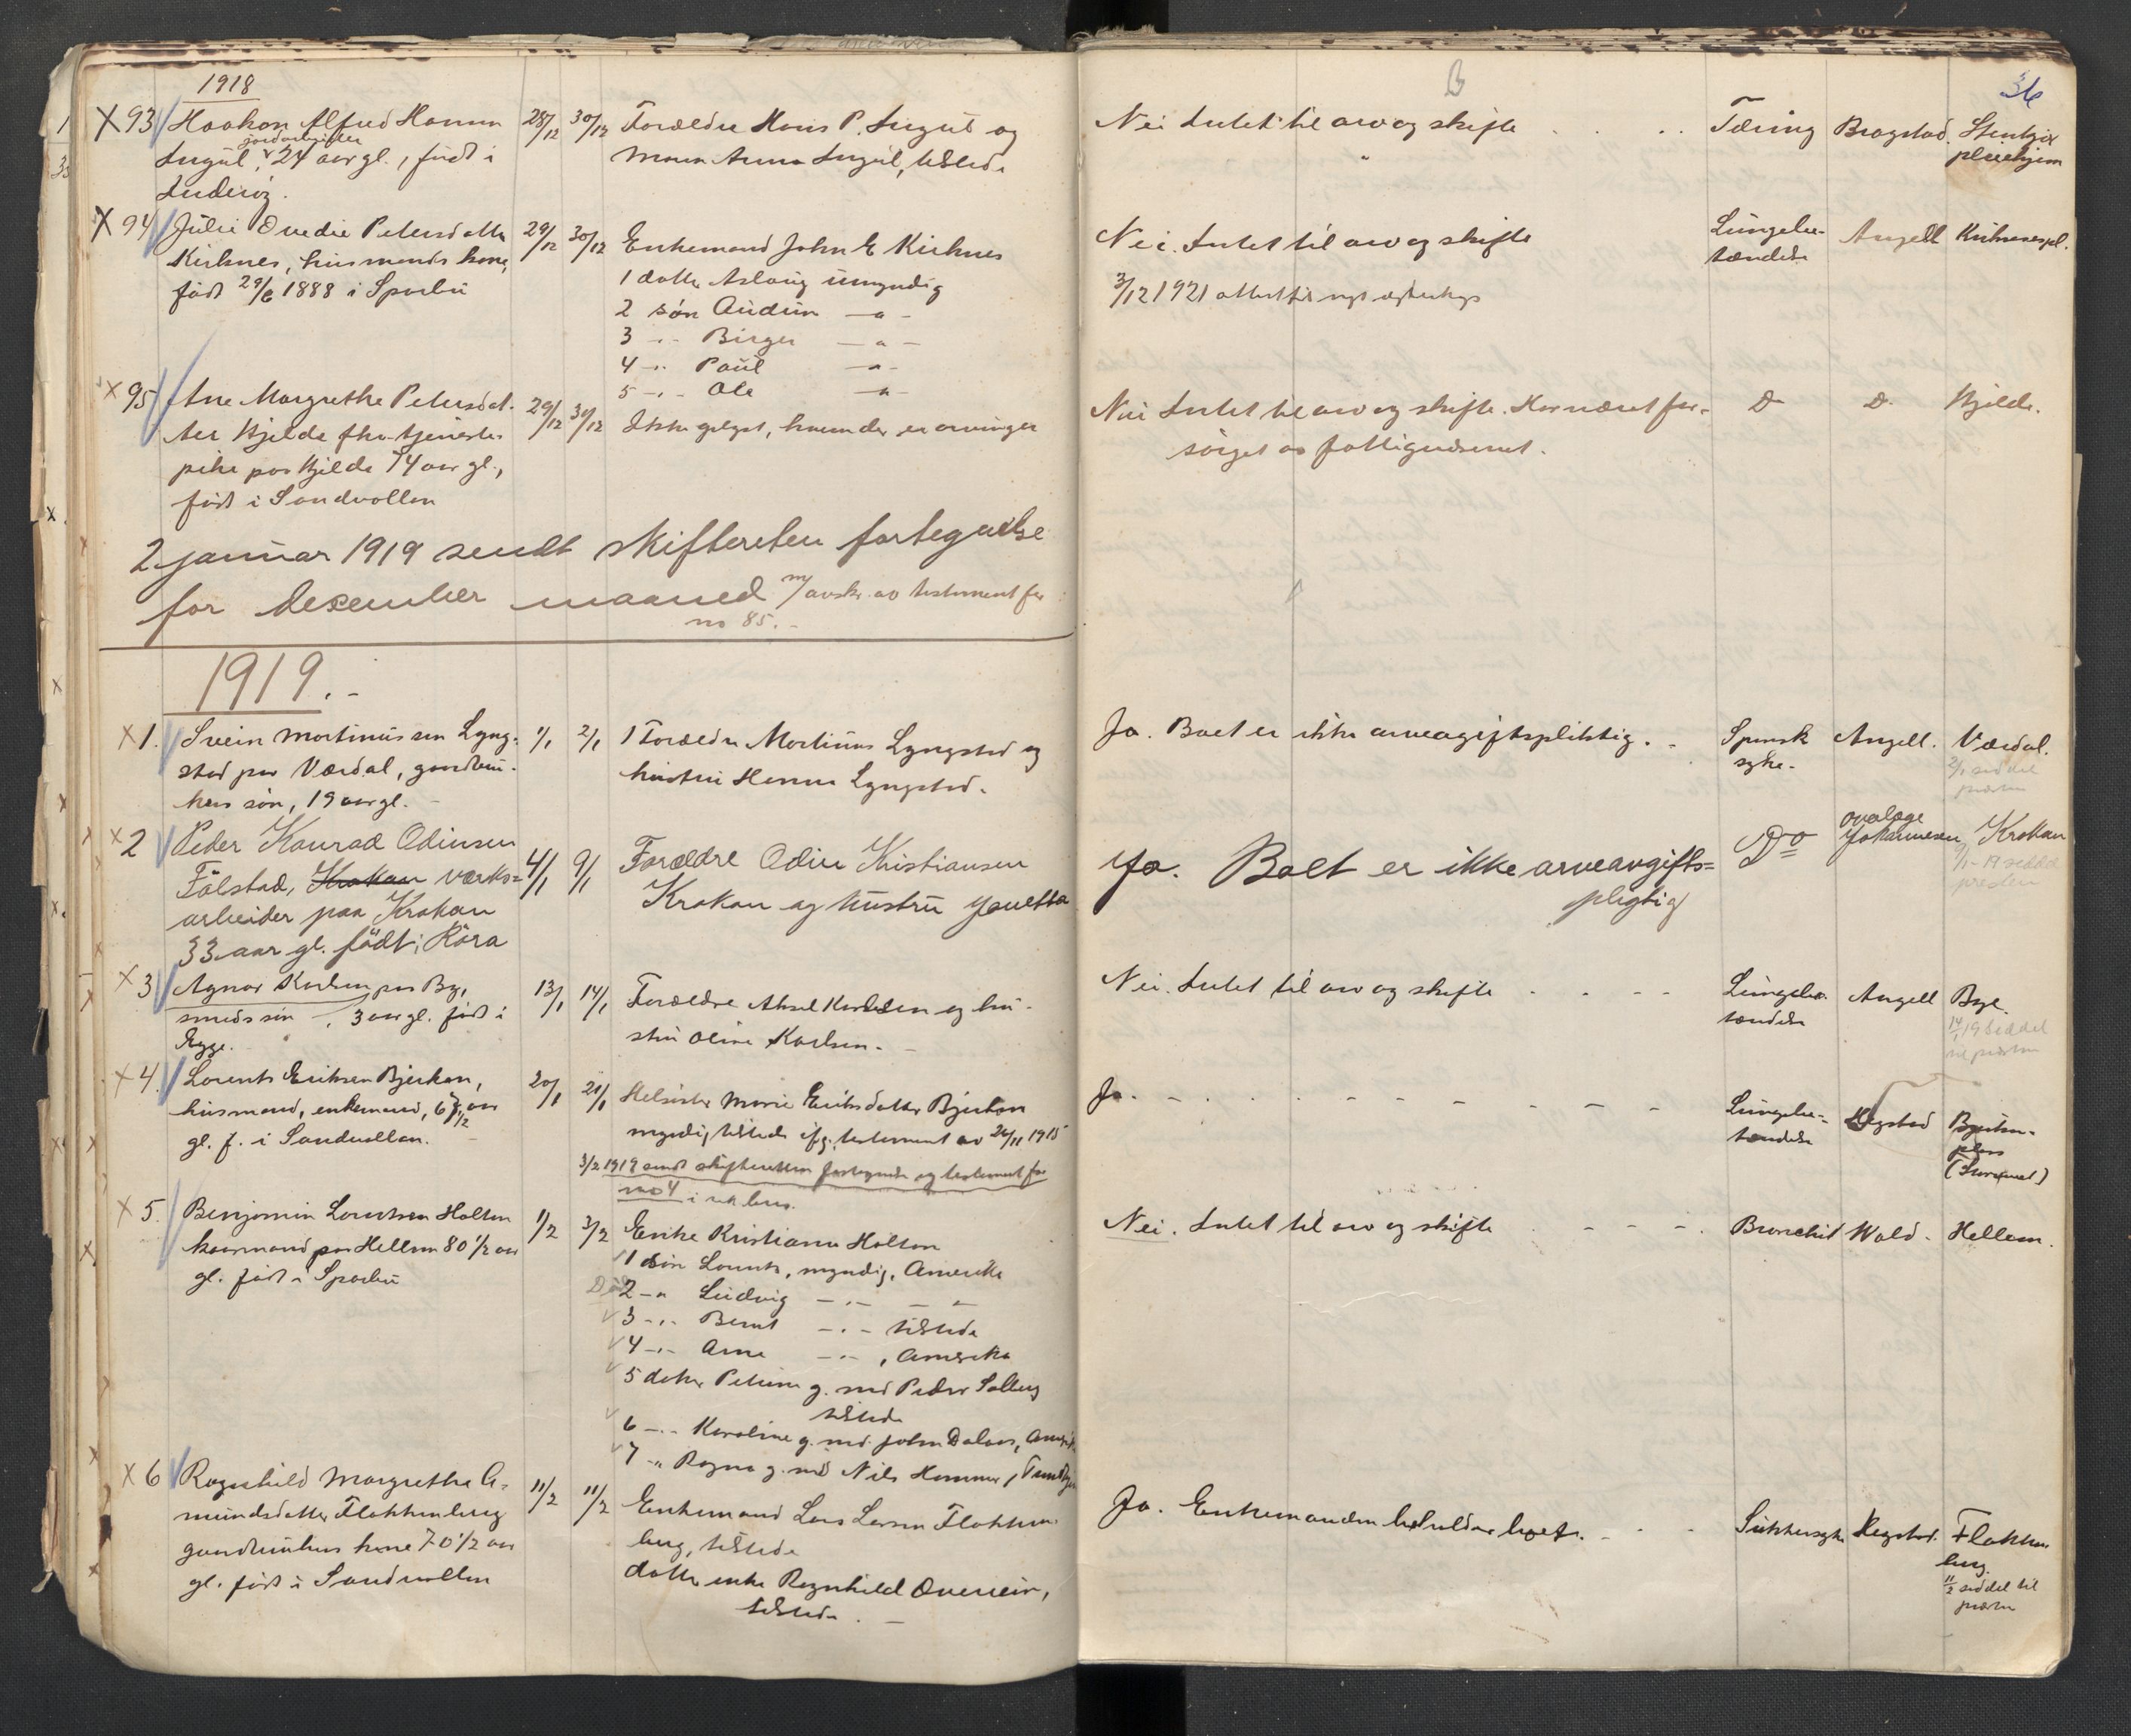 1918
X 93 Haakon Alfred Hansen
Ingul, 24 aar gl., født i
Inderøy.
28/12 30/12
Forældre Hans P. Ingul og
Anna Ingul, tilstede
Nei Intet til arv og skifte
Tæring Bragstad. Stenkjer
pleiehjem
36
X 94 Julie Ovedie Petersdatter
Kirknes, husmands kone,
født 29/6 1888 i Sparbu
29/12 30/12
Enkemand John E Kirknes
1 datter Aslaug umyndig
2 søn Audun — " —
3 - " - Birger — " —
4 - " - Paul — " —
5 - " - Ole — " —
Nei. Intet til arv og skifte
3/12 1921 attest til nyt egteskap
Lungebe-
tændelse
Angell Kirknespl.
X 95 Ane Margrethe Petersdat-
ter Hjelde fhv. tjeneste-
pike paa Hjelde 74 aar gl.,
født i Sandvollan
29/12 30/12
Ikke oplyst, hvem der er arvinger
Nei Intet til arv og skifte. Har været for-
sørget av fattigvæsenet.
D D. Hjelde.
2 januar 1919 sendt skifteretten fortegnelse
for desember maaned m/ avskr. av testament for
no 85. -
1919. -
X 1. Svein Martinussen Lyng-
stad paa Værdal, gaardbru-
kers søn, 19 aar gl. -
1/1 2/1
1 Forældre Martinus Lyngstad og
hustru Hanna Lyngstad.
Ja. Boet er ikke arveavgiftspliktig. -
Spansk
syke. -
Angell. Værdal.
2/1 seddel
presten
X 2 Peder Konrad Odinsen
Følstad, Krokan værks-
arbeider paa Krokan
33 aar gl. født i Røra
4/1 9/1
Forældre Odin Kristiansen
Krokan og hustru Jenetta
Ja. Boet er ikke arveavgifts-
pligtig
Do
overlæge
Johannesen Krokan
9/1-19 seddel
presten
X 3 Agnar Karlsen paa By,
smeds søn, 3 aar gl. født i
Egge.
13/1 14/1
Forældre Aksel Karlsen og hu-
stru Oline Karlsen. -
Nei. Intet til arv og skifte - - - -
Lungebe-
tændelse
Angell Bye.
14/1 19 seddel
til presten
X 4. Lorents Eriksen Bjerkan,
husmand, enkemand, 67 1/2 aar
gl. f. i Sandvollan. -
20/1 21/1
Helsøster Marie Eriksdatter Bjerkan
myndig tilstede ifg. testament av 26/11 1915
3/2 1919 sendt skifteretten fortegnelse og testament for
no 4 i
Ja. - - - - - - - - -
Lungebe-
tændelse
Hegstad Bjerkan-
plass
X 5. Benjamin Lorntsen Holten
kaarmand paa Hellem 80 1/2 aar
gl. født i Sparbu
1/2 3/2
Enke Kristiana Holton
1 søn Lornts, myndig, Amerika
2 - " Ludvig - " - - " -
3 - " - Bernt - " - tilstede
4 - " - Arne - " - , Amerika
5 datter Petrine g. med Peder Solberg
tilstede
6 - " - Karoline g. med John Dalaas, Amerika
7 - " Ragna g. med Nils Hammer,
Nei. Intet til arv og skifte - - - -
Bronchit Wold. Hellem.
X 6 Ragnhild Margrethe A-
mundsdatter Flakkenberg
gaardbrukers kone 70 1/2 aar
gl. født i Sandvollan
11/2 11/2
Enkemand Lars Larsen Flakken-
berg, tilstede
datter enke Ragnhild Overrein,
tilstede. -
Ja. Enkemanden beholder boet. - - -
Sukkersyke Hegstad. Flakken-
berg.
11/2 seddel til
presten